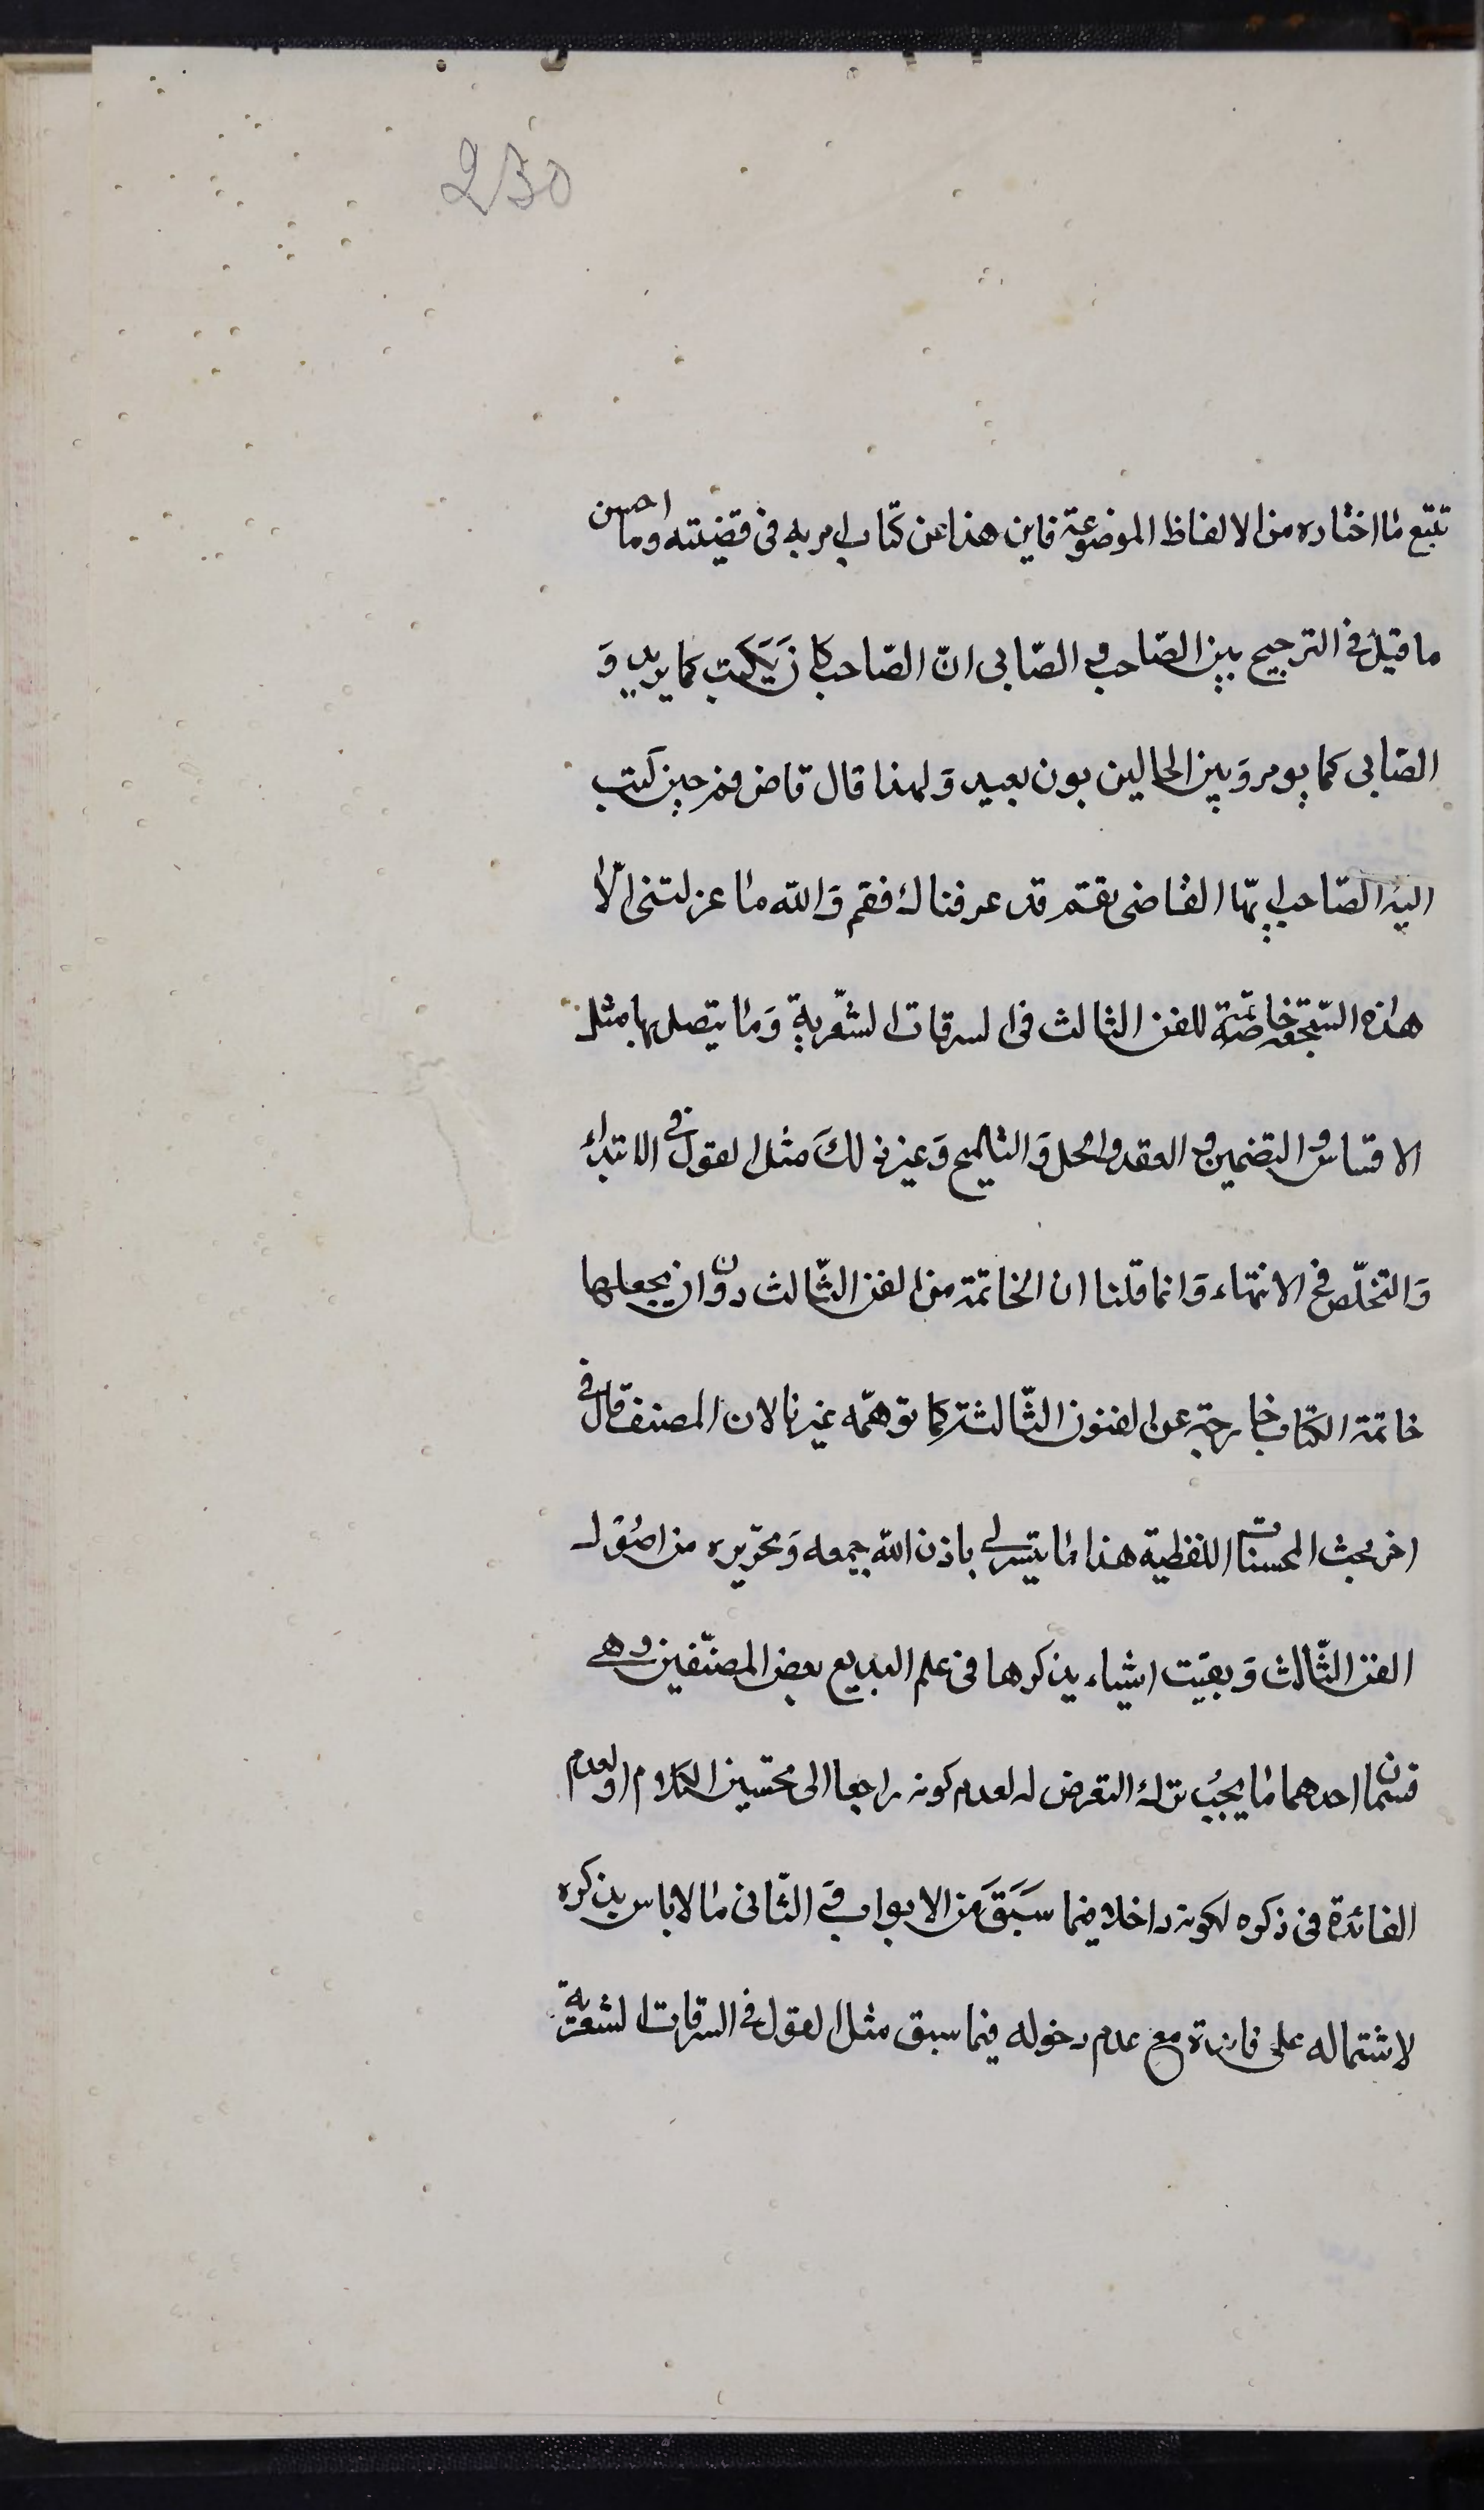 230
تتبع ما اختاره من الالفاظ الموضوعة فاين هذا عن كتاب امر به فى قضيته وما احسن
ما قيل فى الترجيح بين الصّاحب و الصّابى انّ الصّاحب كان يَكتب كما يريد وَ
الصّابى كما يومر وَبين الحالين بون بعيد وَلهذا قال قاض قم حين كتب
اليه الصّاحب ايّها القاضى بقم قد عزلناك فقم وَاللّه ما عزلتنى الّا
هذه السّجعة خاتمة للفن الثالث فى السرقات الشّعرية وَما يتصل بها مثل
الاقتباس و التضمين و العقد و الحل وَالتلميح وَغير ذلكَ مثل القول فى الابتداء
وَالتخلّص فى الانتهاء وَانما قلنا ان الخاتمة من الفن الثّالث دون ان يجعلها
خاتمة الكتاب خارجة عن الفنون الثّالثة كما توهمّه غيرنا لان المصنف قال فى
اخر بحث المحسنات اللفظية هذا ما تيسر لى باذن اللّه جمعه وَتحريره من اصُول
الفن الثّالث وَبقيت اشياء يذكرها فى علم البديع بعض المصنّفين وهى
قسمان احدهما ما يجبُ ترك التعرض له لعدم كونه راجعا الى تحسين الكلام او لعدم
الفائدة فى ذكره لكونه داخلا فيما سَبَقَ مَن الابواب وَ الثّانى ما لا باس بذكره
لاشتماله على فائدة مع عدم دخوله فيما سبق مثل القول فى السرقات الشعرية